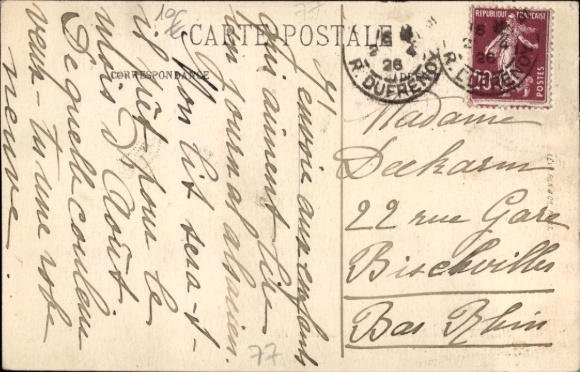 CARTE POSTALE
CORRESPONDANCE
77
RÉPUBLIQUE FRANÇAISE
POSTES
26
R. DUFRENOY
R. DUFRENOY
J'envoie aux enfants
qui aiment lire
un journal alsacien.
Mon lit sera-t-
il prêt pour le
mois d'Août
De quelle couleur
veux-tu une robe
neuve
Madame
Deekarm
22 rue Gare
Bischviller
Bas Rhin
77